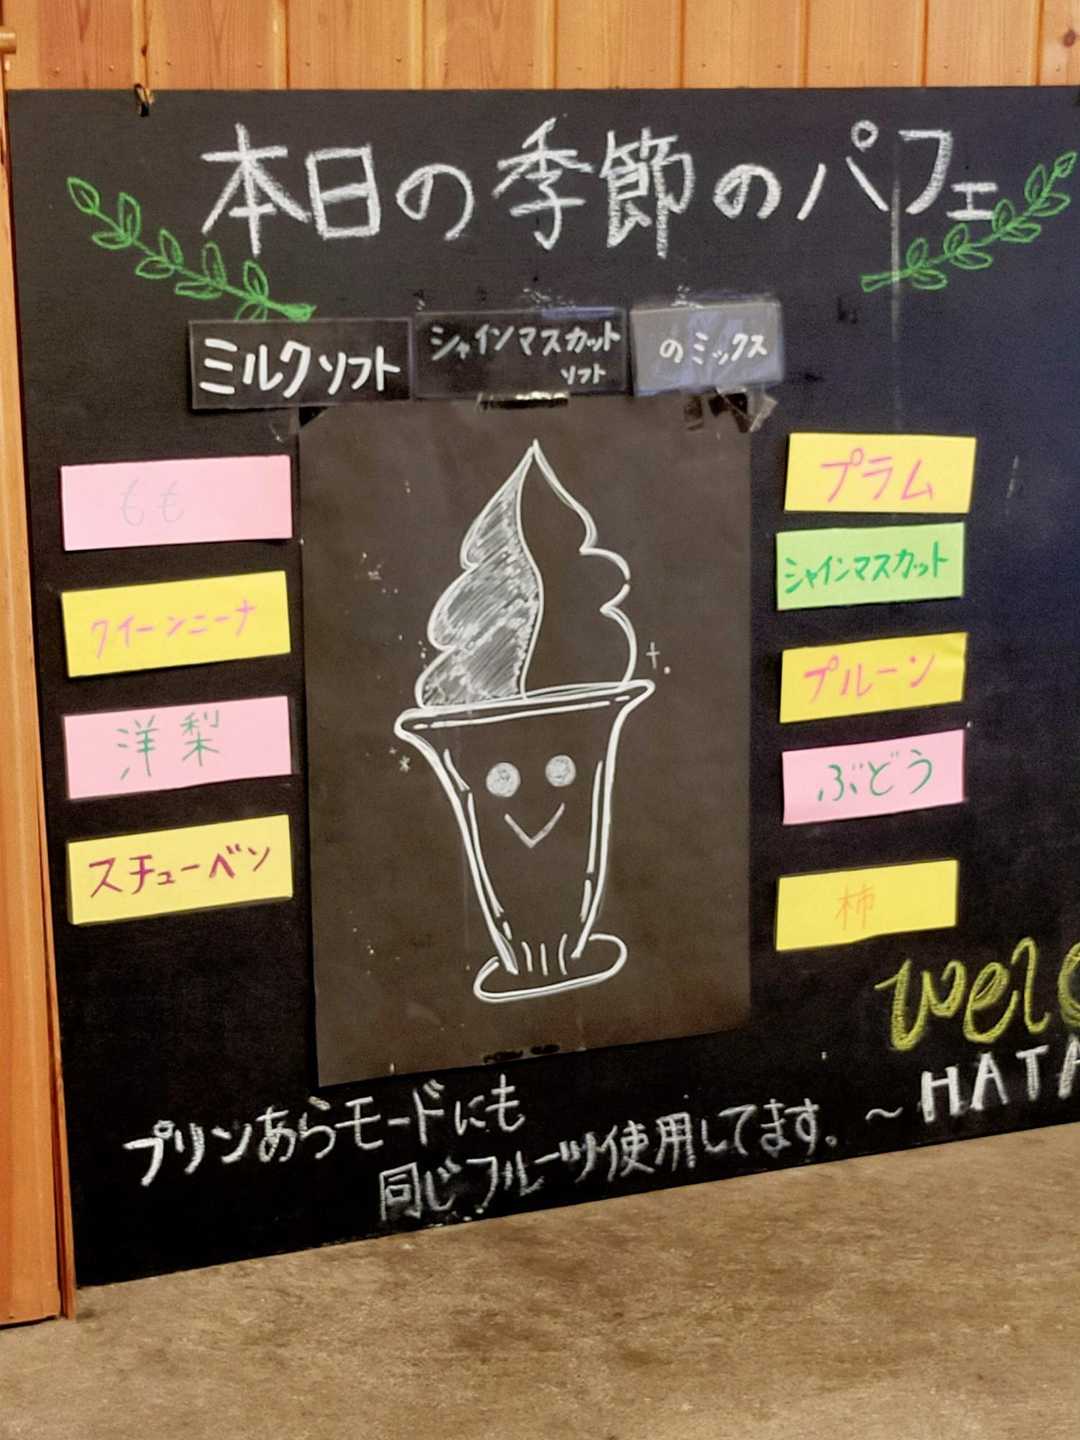 本日の季節のパフェ
ミルクソフト
シャインマスカット
ソフト
のミックス
もも
クイーンニーナ
洋梨
スチューベン
プラム
シャインマスカット
プルーン
ぶどう
柿
プリンあらモードにも
同じフルーツ使用してます。
Welc
～HATA